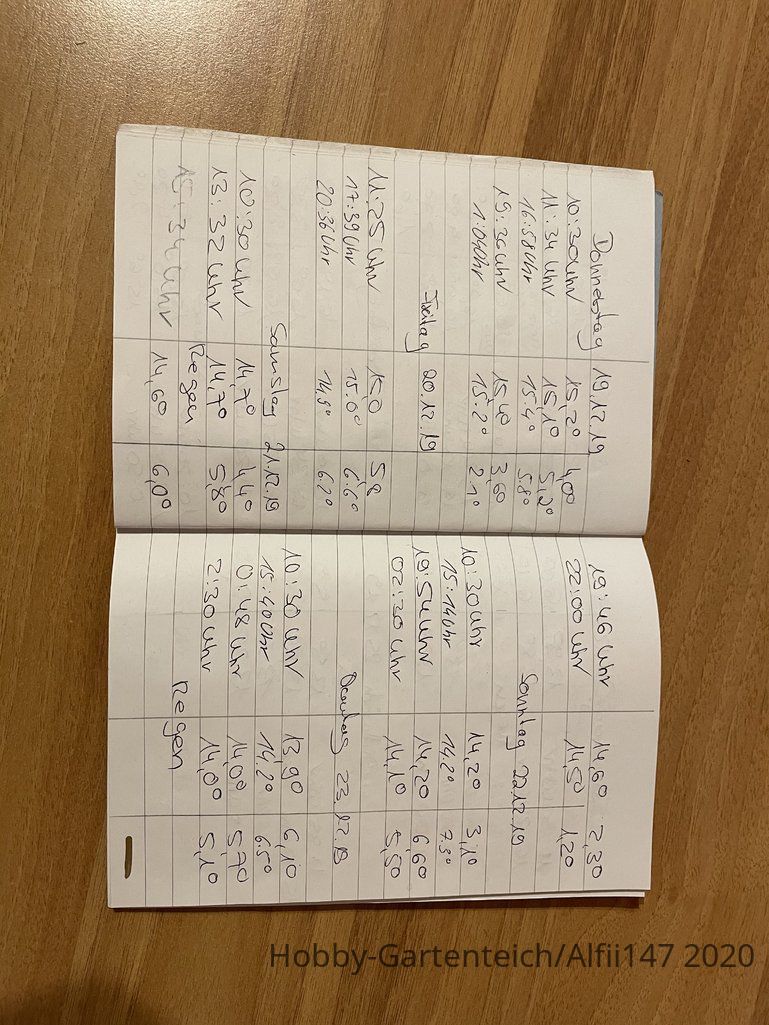 Donnerstag 19.12.19
10:30Uhr 15,2° 4,00
11:34 Uhr 15,1° 5,2°
16:58Uhr 15.4° 5.8°
19:30Uhr 15,4° 3,60
1:04Uhr 15.2° 2.1°
Freitag 20.12.19
11:25 Uhr 15,0 5,8
17:39Uhr 15.0° 6.6°
20:36Uhr 14.9° 6.2°
Samstag 21.12.19
10:30Uhr 14,7° 4,4°
13:32 Uhr 14,7° 5,8°
Regen
15:34Uhr 14,6° 6,0°
19:46 Uhr 14,6° 2,3°
22:00 Uhr 14,5° 1,2°
Sonntag 22.12.19
10:30Uhr 14,2° 3,1°
15:14Uhr 14.2° 7.3°
19:54Uhr 14,2° 6,6°
02:20 Uhr 14,1° 5,5°
23.12.19
10:30 Uhr 13,9° 6,1°
15:40Uhr 14.2° 6.5°
0:48 Uhr 14,0° 5,7°
2:30 Uhr 14,0° 5,1°
Regen
Hobby-Gartenteich/Alfii147 2020